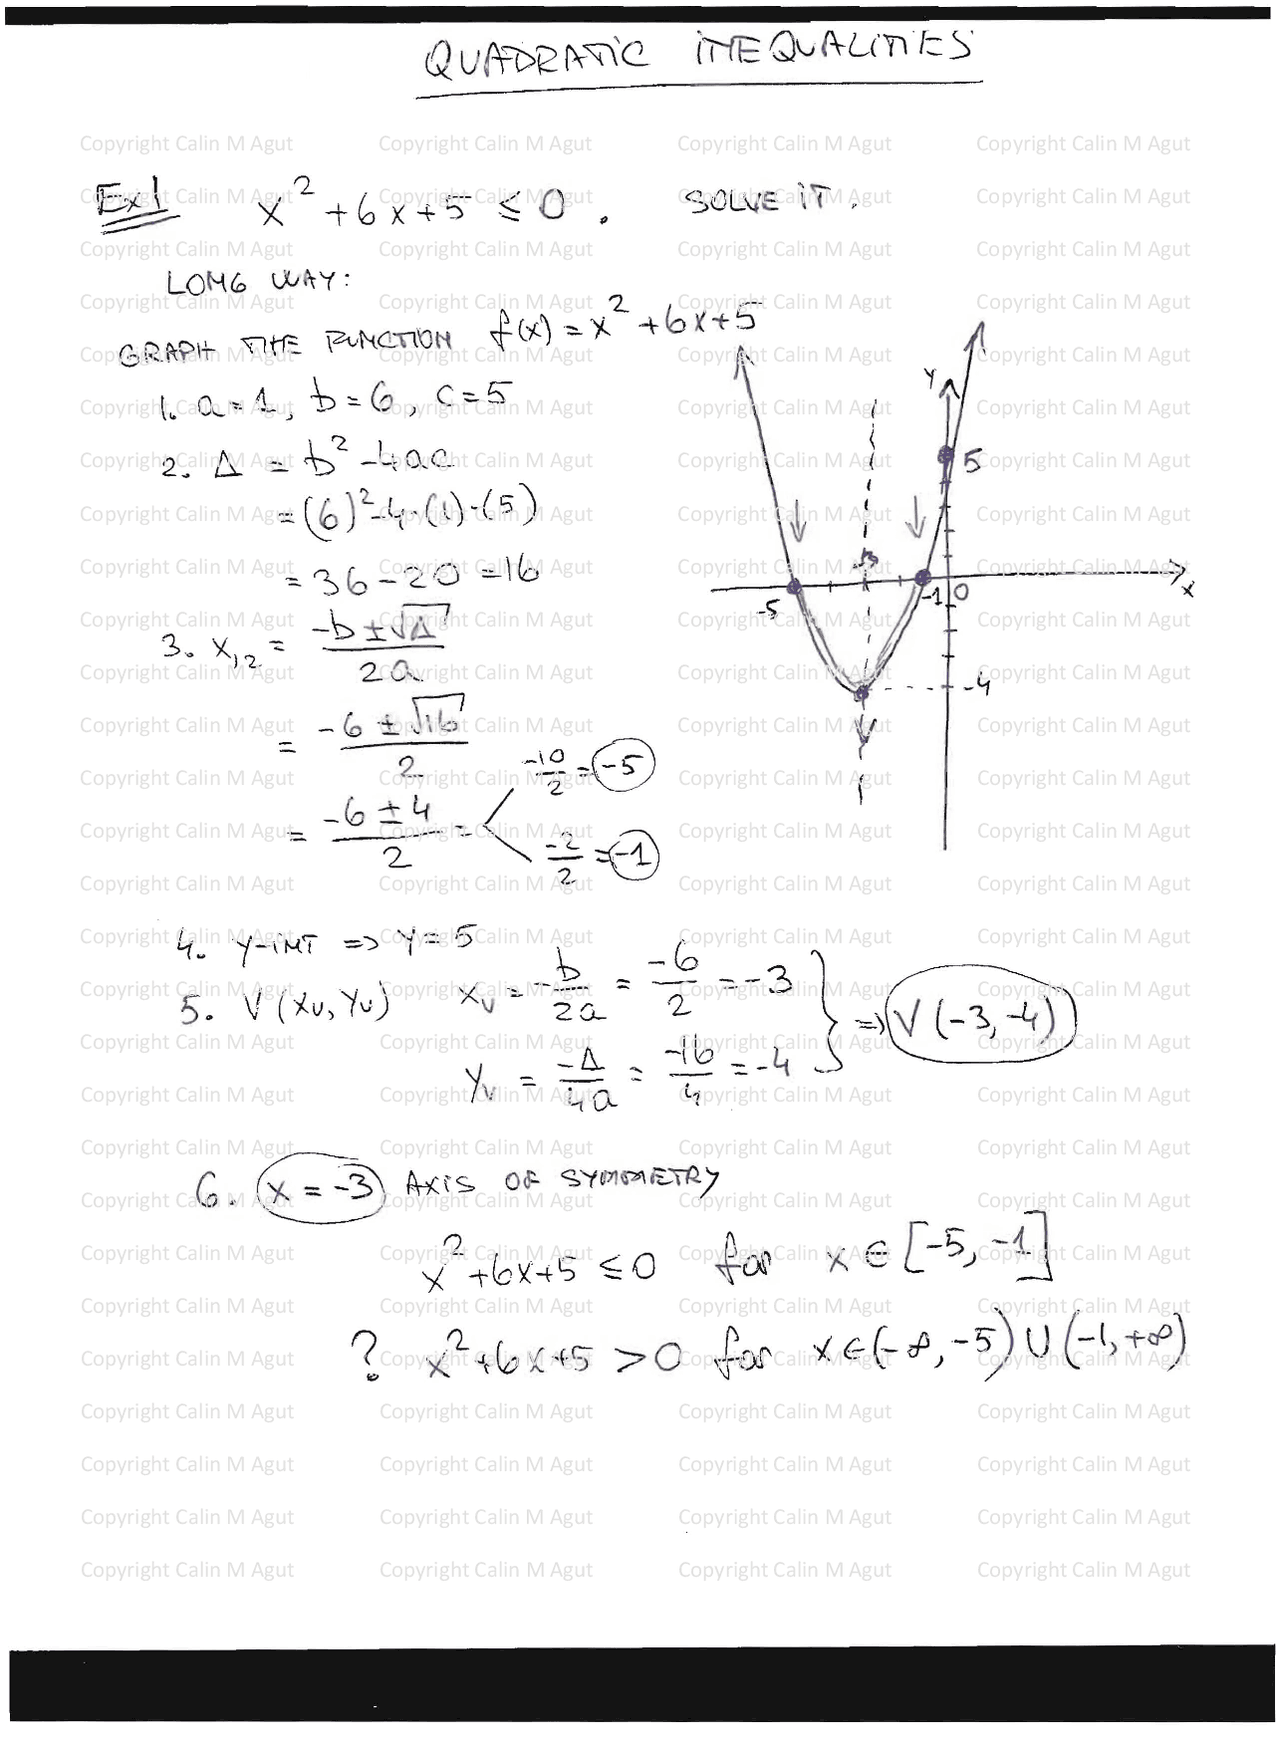 QUADRATIC INEQUALITIES
Ex1 x² + 6x + 5 ≤ 0 . SOLVE IT.
LONG WAY:
GRAPH THE FUNCTION f(x) = x² + 6x + 5
1. a = 1, b = 6, c = 5
2. Δ = b² - 4ac
= (6)² - 4·(1)·(5)
= 36 - 20 = 16
3. x₁,₂ = (-b ± √Δ) / 2a
= (-6 ± √16) / 2
= (-6 ± 4) / 2 =
-10/2 = -5
-2/2 = -1
4. Y-INT => Y = 5
5. V (Xv, Yv) Xv = -b/2a = -6/2 = -3
Yv = -Δ/4a = -16/4 = -4
=> V (-3, -4)
6. x = -3 AXIS OF SYMMETRY
x² + 6x + 5 ≤ 0 for x ∈ [-5, -1]
? x² + 6x + 5 > 0 for x ∈ (-∞, -5) ∪ (-1, +∞)
Y
5
-3
-5
-1
0
X
-4
Copyright Calin M Agut